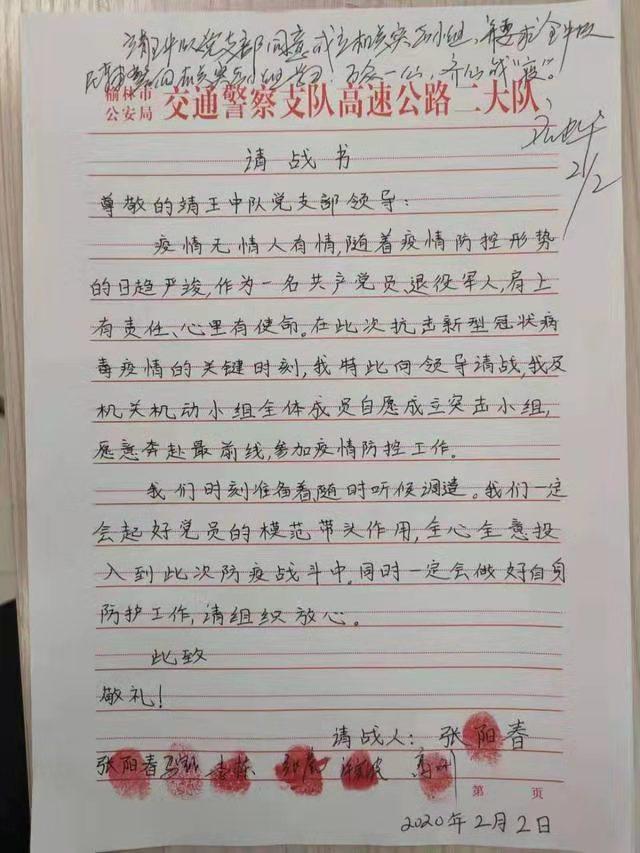 靖王中队党支部同意成立机关突击小组,并要求全中队
民辅警向机关突击小组学习,万众一心,齐心战“疫”。
榆林市
公安局 交通警察支队高速公路二大队
2/2
请战书
尊敬的靖王中队党支部领导:
疫情无情人有情,随着疫情防控形势
的日趋严峻,作为一名共产党员、退役军人,肩上
有责任、心里有使命。在此次抗击新型冠状病
毒疫情的关键时刻,我特此向领导请战,我及
机关机动小组全体成员自愿成立突击小组,
愿意奔赴最前线,参加疫情防控工作。
我们时刻准备着,随时听候调遣。我们一定
会起好党员的模范带头作用,全心全意投
入到此次防疫战斗中。同时一定会做好自身
防护工作,请组织放心。
此致
敬礼!
请战人:张阳春
张阳春 李栋
第 页
2020年2月2日